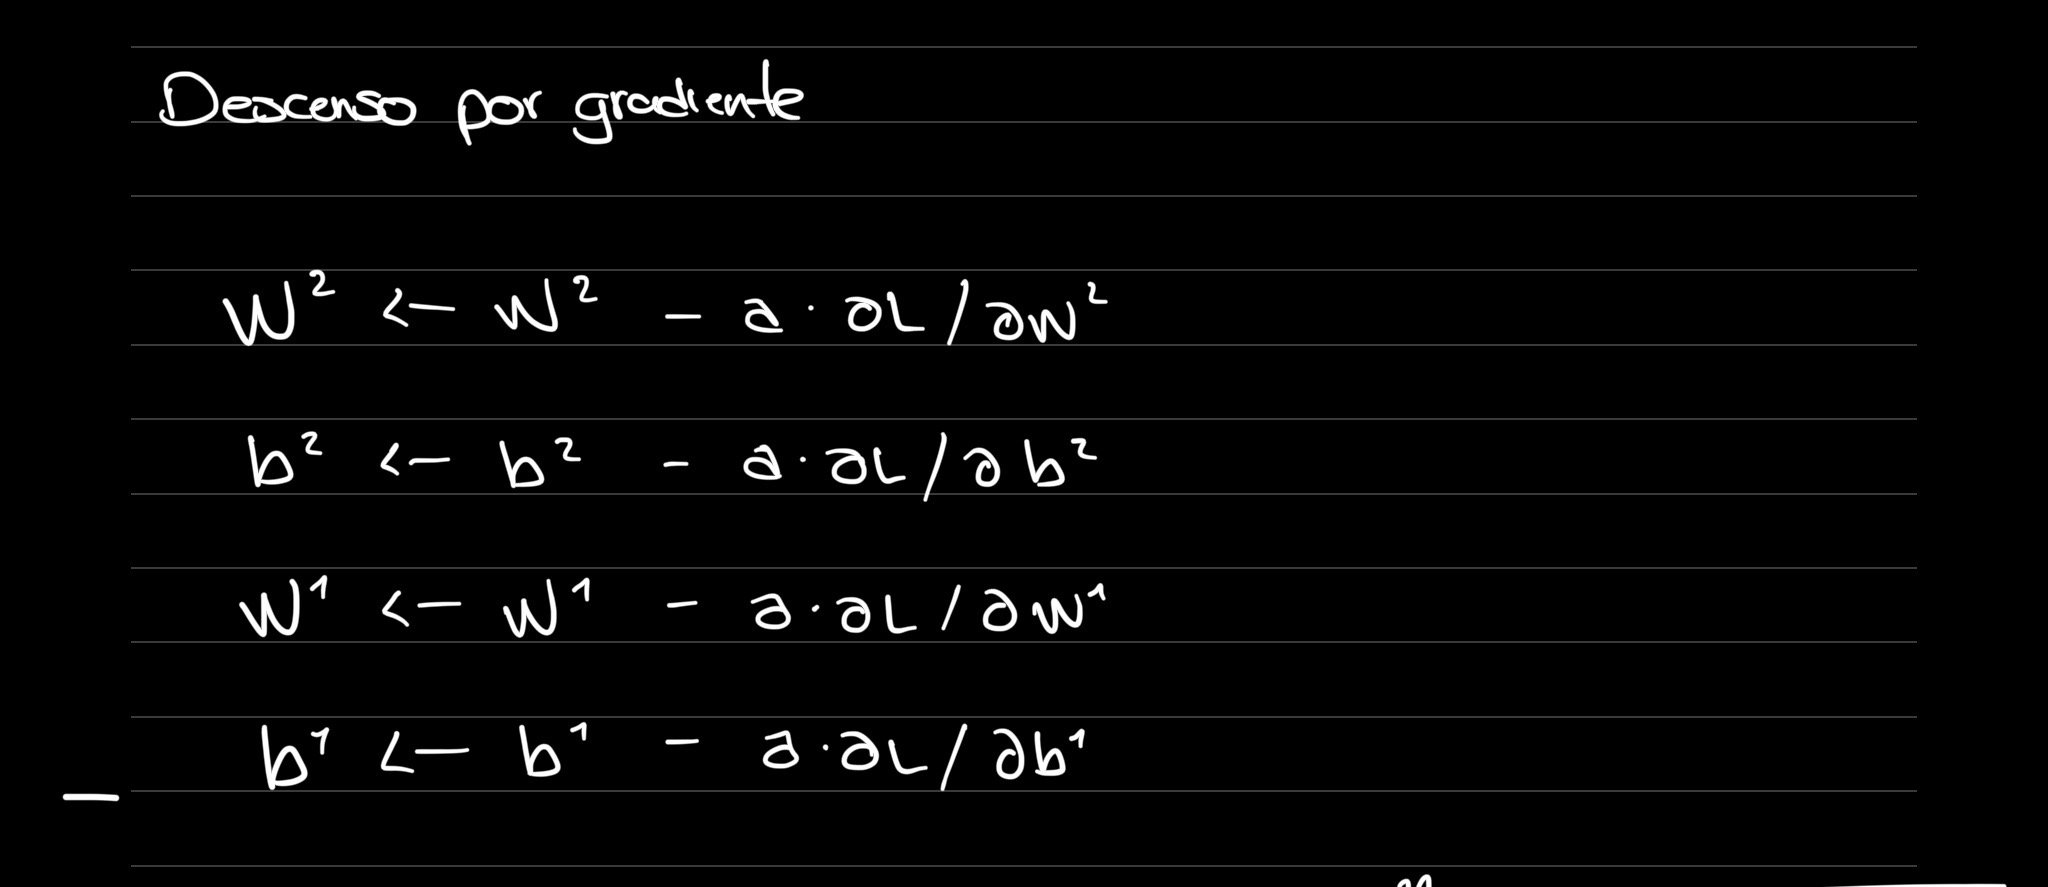 Descenso por gradiente
W² <- W² - a · ∂L/∂W²
b² <- b² - a · ∂L/∂b²
W¹ <- W¹ - a · ∂L/∂W¹
b¹ <- b¹ - a · ∂L/∂b¹